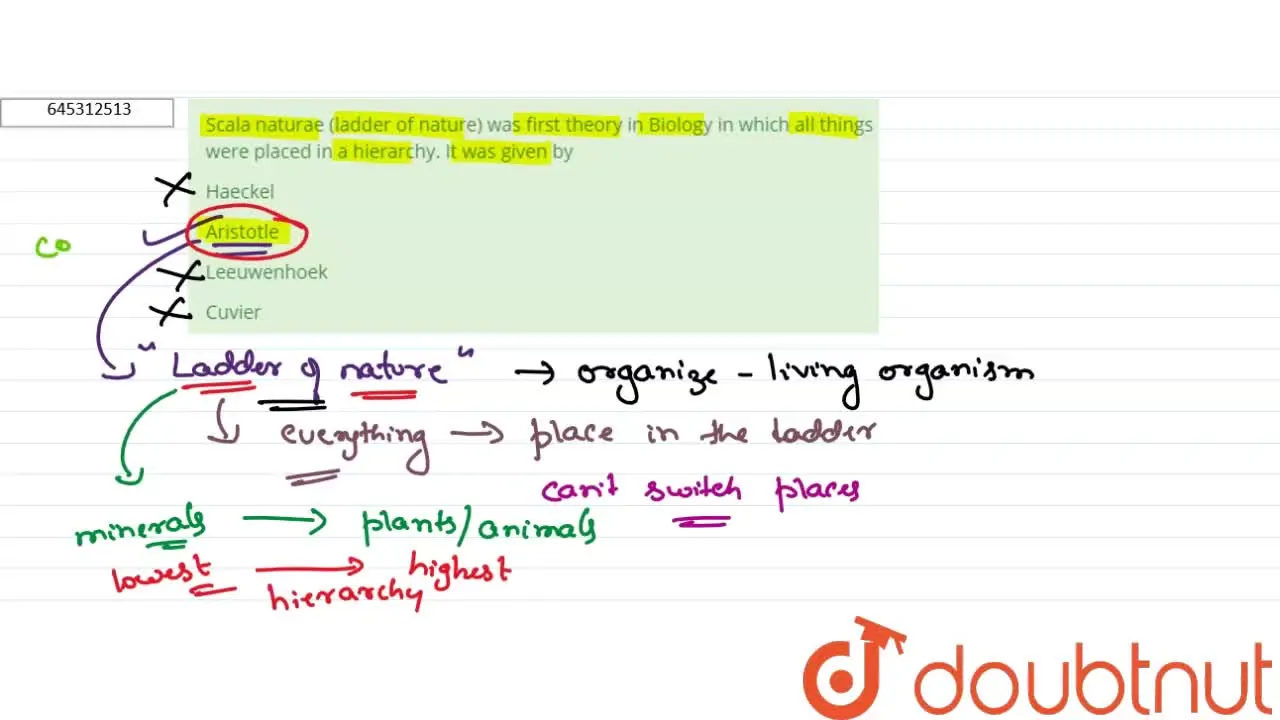 645312513
Scala naturae (ladder of nature) was first theory in Biology in which all things
were placed in a hierarchy. It was given by
Haeckel
Aristotle
co
Leeuwenhoek
Cuvier
"Ladder of nature" → organize - living organism
everything → place in the ladder
can't switch places
minerals → plants/animals
lowest → highest
hierarchy
doubtnut